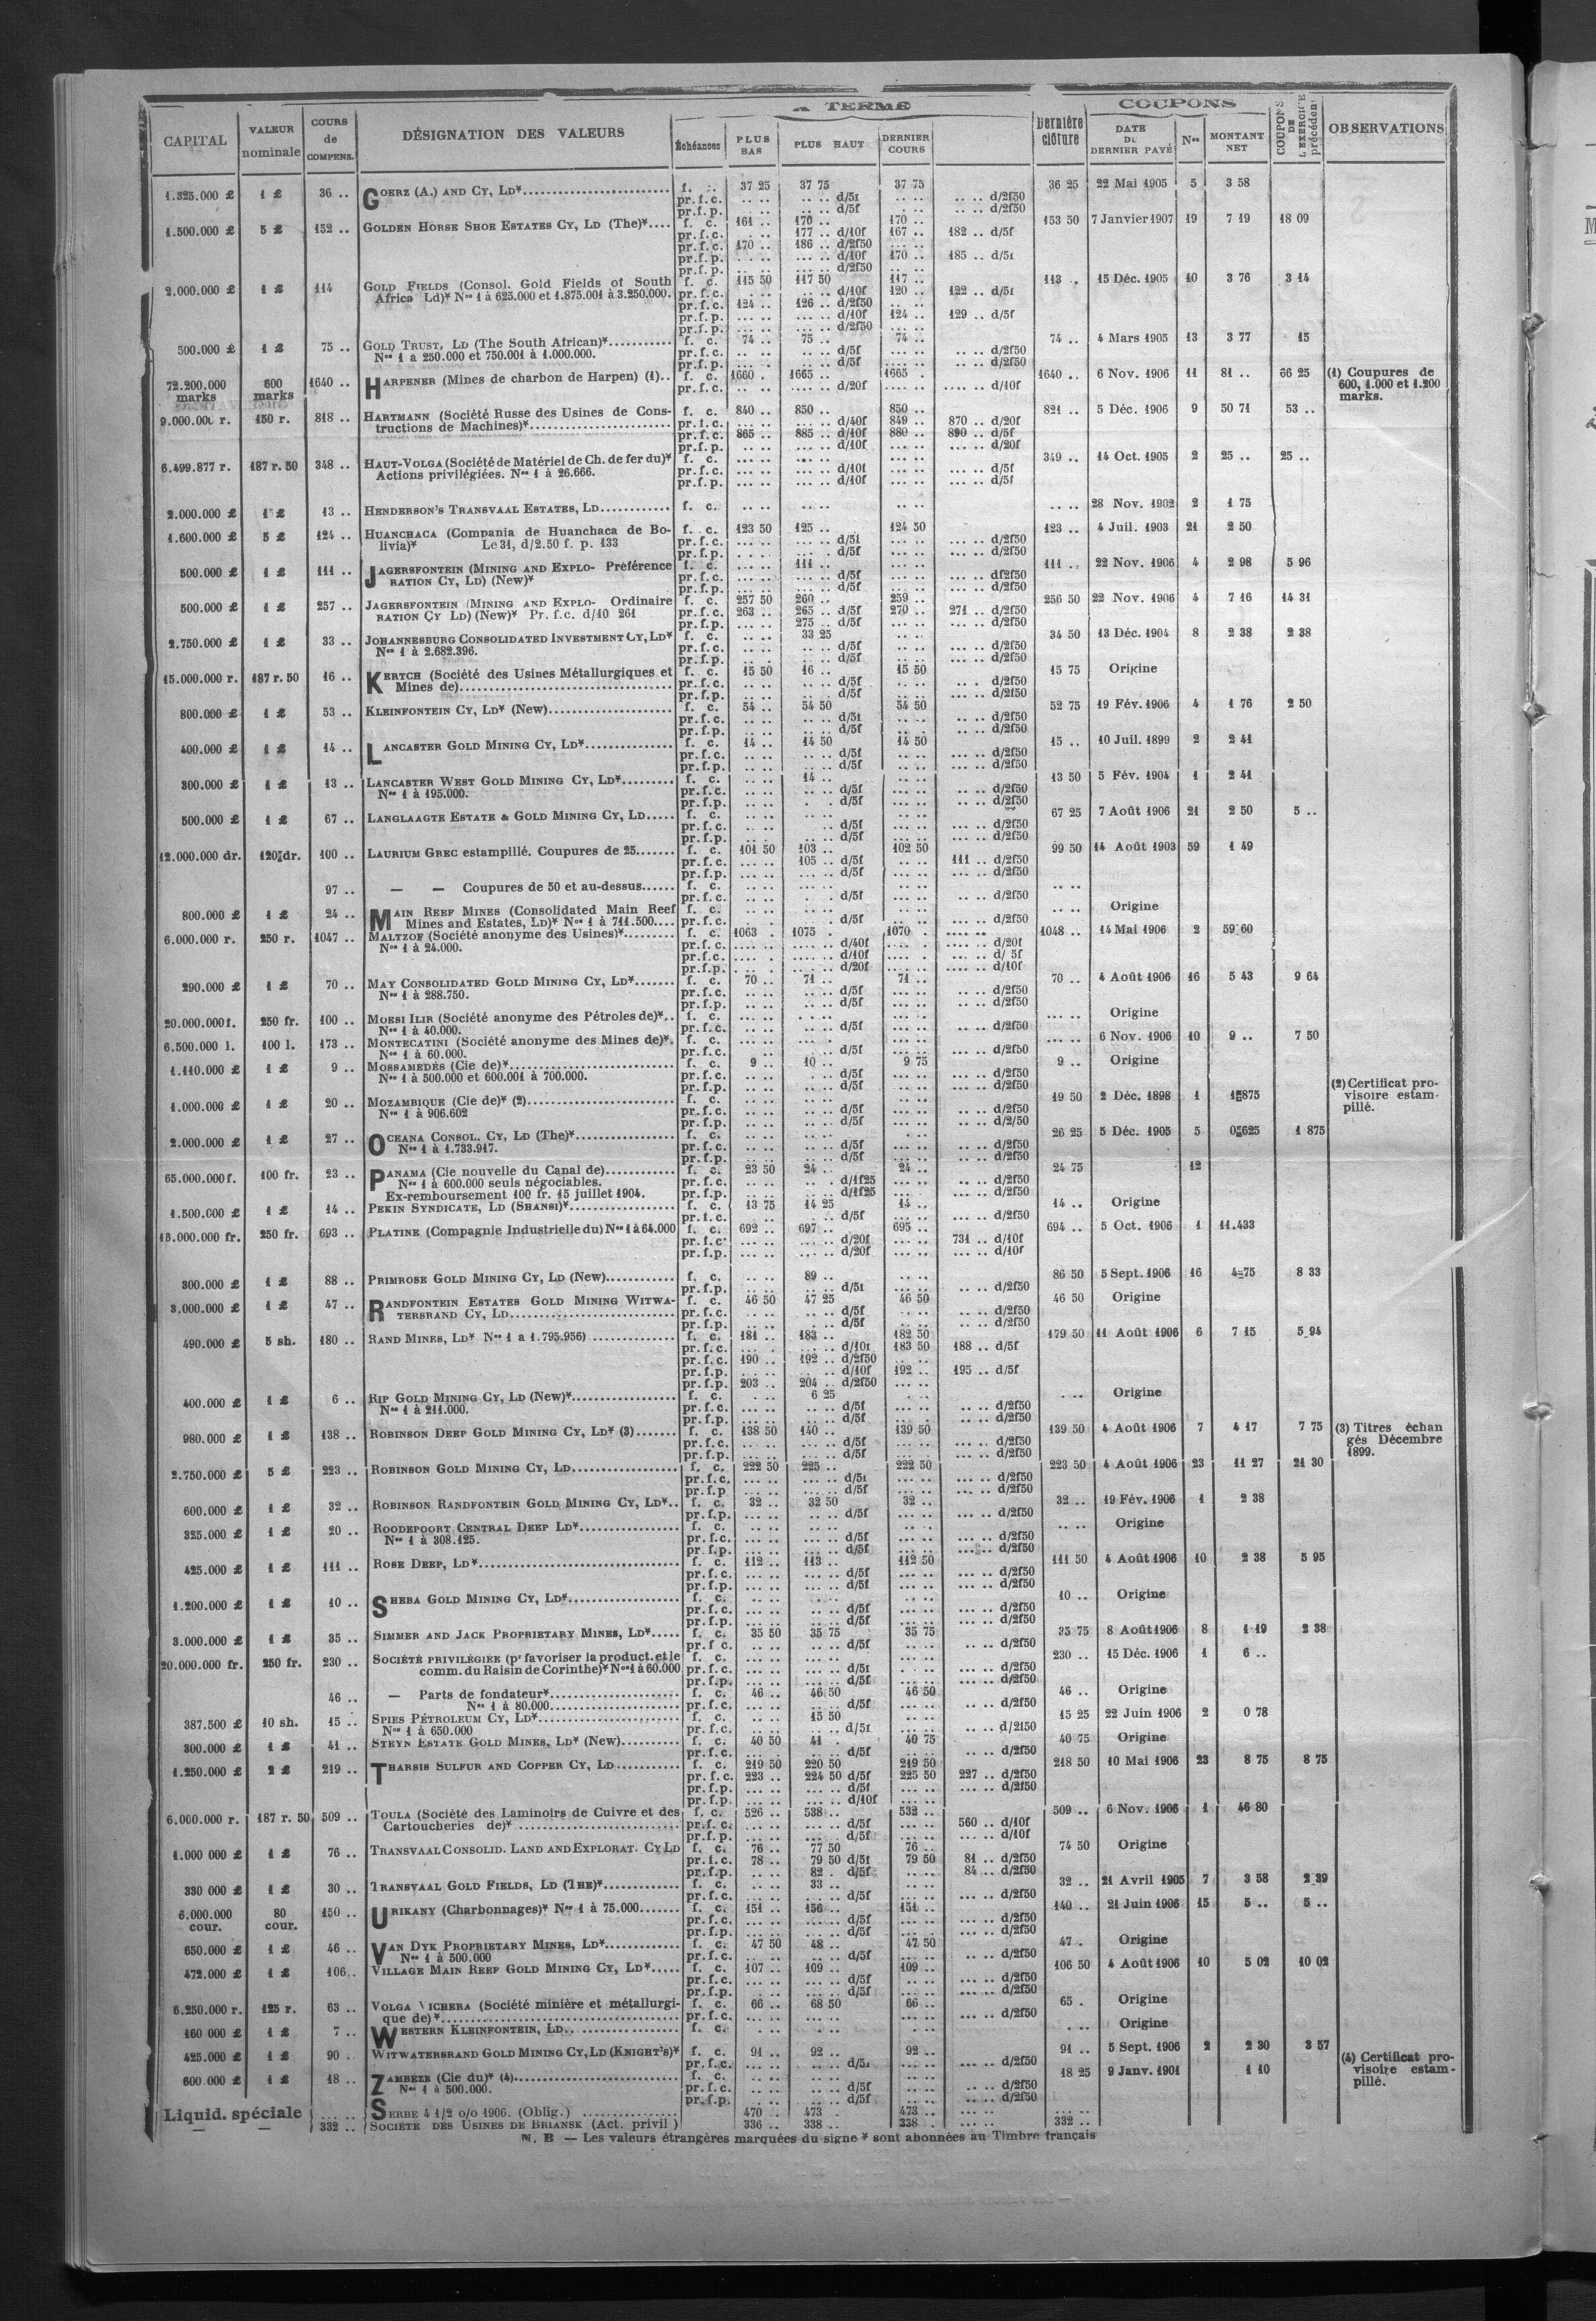 A TERME
COUPONS
CAPITAL
VALEUR nominale
COURS de COMPENS.
DÉSIGNATION DES VALEURS
Échéances
PLUS BAS
PLUS HAUT
DERNIER COURS
Dernière clôture
DATE DU DERNIER PAYÉ
Nos
MONTANT NET
COUPONS DE L'EXERCICE précédent
OBSERVATIONS
1.325.000 £ 1 £ 36 .. GOERZ (A.) AND CY, LD* f. c. 37 25 37 75 37 75 36 25 22 Mai 1905 5 3 58
1.500.000 £ 5 £ 152 .. GOLDEN HORSE SHOE ESTATES CY, LD (The)* f. c. 161 .. 170 .. 170 .. 153 50 7 Janvier 1907 19 7 19 18 09
pr.f.c. 177 .. d/10f 167 .. 182 .. d/5f
pr.f.c. 170 .. 186 .. d/2f50
2.000.000 £ 1 £ 114 GOLD FIELDS (Consol. Gold Fields of South f. c. 115 50 117 50 117 .. 113 .. 15 Déc. 1905 10 3 76 3 14
Africa Ld)* Nos 1 à 625.000 et 1.875.001 à 3.250.000. pr.f.c. d/10f 120 .. 122 .. d/5f
pr.f.c. 124 .. 126 .. d/2f50
pr.f.p. d/10f 124 .. 129 .. d/5f
500.000 £ 1 £ 75 .. GOLD TRUST, LD (The South African)* f. c. 74 .. 75 .. 74 .. 74 .. 4 Mars 1905 13 3 77 15
Nos 1 à 250.000 et 750.001 à 1.000.000.
72.200.000 marks 600 marks 1640 .. HARPENER (Mines de charbon de Harpen) (1).. f. c. 1660 . 1665 .. 1665 . 1640 .. 6 Nov. 1906 11 81 .. 66 25 (1) Coupures de 600, 1.000 et 1.200 marks.
pr.f.c. d/20f d/10f
9.000.000 r. 150 r. 818 .. HARTMANN (Société Russe des Usines de Cons- f. c. 840 .. 850 .. 850 .. 821 .. 5 Déc. 1906 9 50 71 53 ..
tructions de Machines)* pr.f.c. d/40f 849 .. 870 .. d/20f
pr.f.c. 865 .. 885 .. d/10f 880 .. 890 .. d/5f
pr.f.p. d/10f d/20f
6.499.877 r. 187 r. 50 348 .. HAUT-VOLGA (Société de Matériel de Ch. de fer du)* f. c. 349 .. 14 Oct. 1905 2 25 .. 25 ..
Actions privilégiées. Nos 1 à 26.666. pr.f.c. d/10f d/5f
pr.f.p. d/10f d/5f
2.000.000 £ 1 £ 13 .. HENDERSON'S TRANSVAAL ESTATES, LD f. c. 28 Nov. 1902 2 1 75
1.600.000 £ 5 £ 124 .. HUANCHACA (Compania de Huanchaca de Bo- f. c. 123 50 125 .. 124 50 123 .. 4 Juil. 1903 21 2 50
livia)* Le 31, d/2.50 f. p. 133
500.000 £ 1 £ 111 .. JAGERSFONTEIN (MINING AND EXPLO- Préférence f. c. 111 .. 111 .. 22 Nov. 1906 4 2 98 5 96
RATION CY, LD) (New)*
500.000 £ 1 £ 257 .. JAGERSFONTEIN (MINING AND EXPLO- Ordinaire f. c. 257 50 260 .. 259 .. 256 50 22 Nov. 1906 4 7 16 14 31
RATION CY LD) (New)* Pr. f.c. d/10 261 pr.f.c. 263 .. 265 .. d/5f 270 .. 271 .. d/2f50
pr.f.p. 275 .. d/5f d/2f50
2.750.000 £ 1 £ 33 .. JOHANNESBURG CONSOLIDATED INVESTMENT CY, LD* f. c. 33 25 34 50 13 Déc. 1904 8 2 38 2 38
Nos 1 à 2.682.396.
15.000.000 r. 187 r. 50 16 .. KERTCH (Société des Usines Métallurgiques et f. c. 15 50 16 .. 15 50 15 75 Origine
Mines de)
800.000 £ 1 £ 53 .. KLEINFONTEIN CY, LD* (New) f. c. 54 .. 54 50 54 50 52 75 19 Fév. 1906 4 1 76 2 50
400.000 £ 1 £ 14 .. LANCASTER GOLD MINING CY, LD* f. c. 14 .. 14 50 14 50 15 .. 10 Juil. 1899 2 2 41
300.000 £ 1 £ 13 .. LANCASTER WEST GOLD MINING CY, LD* f. c. 14 .. 13 50 5 Fév. 1904 1 2 41
Nos 1 à 195.000.
500.000 £ 1 £ 67 .. LANGLAAGTE ESTATE & GOLD MINING CY, LD f. c. 67 25 7 Août 1906 21 2 50 5 ..
12.000.000 dr. 120 dr. 100 .. LAURIUM GREC estampillé. Coupures de 25 f. c. 101 50 103 .. 102 50 99 50 14 Août 1903 59 1 49
pr.f.c. 105 .. d/5f 111 .. d/2f50
97 .. — — Coupures de 50 et au-dessus f. c.
800.000 £ 1 £ 24 .. MAIN REEF MINES (Consolidated Main Reef f. c. Origine
Mines and Estates, LD)* Nos 1 à 711.500
6.000.000 r. 250 r. 1047 .. MALTZOF (Société anonyme des Usines)* f. c. 1063 . 1075 . 1070 . 1048 .. 14 Mai 1906 2 59 60
Nos 1 à 24.000. pr.f.c. d/40f d/20f
pr.f.c. d/10f d/ 5f
pr.f.p. d/20f d/10f
290.000 £ 1 £ 70 .. MAY CONSOLIDATED GOLD MINING CY, LD* f. c. 70 .. 71 .. 71 .. 70 .. 4 Août 1906 16 5 43 9 64
Nos 1 à 288.750.
20.000.000 f. 250 fr. 100 .. MOESI ILIR (Société anonyme des Pétroles de)*.. f. c. Origine
Nos 1 à 40.000.
6.500.000 l. 100 l. 173 .. MONTECATINI (Société anonyme des Mines de)*. f. c. 6 Nov. 1906 10 9 .. 7 50
Nos 1 à 60.000.
1.110.000 £ 1 £ 9 .. MOSSAMEDÈS (Cie de)* f. c. 9 .. 10 .. 9 75 9 .. Origine
Nos 1 à 500.000 et 600.001 à 700.000.
1.000.000 £ 1 £ 20 .. MOZAMBIQUE (Cie de)* (2) f. c. 19 50 2 Déc. 1898 1 1 875 (2) Certificat provisoire estampillé.
Nos 1 à 906.602
2.000.000 £ 1 £ 27 .. OCEANA CONSOL. CY, LD (The)* f. c. 26 25 5 Déc. 1905 5 0 625 1 875
Nos 1 à 1.733.917.
65.000.000 f. 100 fr. 23 .. PANAMA (Cie nouvelle du Canal de) f. c. 23 50 24 .. 24 .. 24 75 12
Nos 1 à 600.000 seuls négociables. pr.f.c. d/1f25 d/2f50
Ex-remboursement 100 fr. 15 juillet 1904. pr.f.p. d/1f25 d/2f50
1.500.000 £ 1 £ 14 .. PEKIN SYNDICATE, LD (SHANSI)* f. c. 13 75 14 25 14 .. 14 .. Origine
18.000.000 fr. 250 fr. 693 .. PLATINE (Compagnie Industrielle du) Nos 1 à 64.000 f. c. 692 .. 697 .. 695 .. 694 .. 5 Oct. 1906 1 11.433
pr.f.c. d/20f 731 .. d/10f
pr.f.p. d/20f d/10f
300.000 £ 1 £ 88 .. PRIMROSE GOLD MINING CY, LD (New) f. c. 89 .. 86 50 5 Sept. 1906 16 4 75 8 33
3.000.000 £ 1 £ 47 .. RANDFONTEIN ESTATES GOLD MINING WITWA- f. c. 46 50 47 25 46 50 46 50 Origine
TERSRAND CY, LD
490.000 £ 5 sh. 180 .. RAND MINES, LD* Nos 1 a 1.795.956) f. c. 181 .. 183 .. 182 50 179 50 11 Août 1906 6 7 15 5 94
pr.f.c. d/10f 183 50 188 .. d/5f
pr.f.c. 190 .. 192 .. d/2f50
pr.f.p. d/10f 192 .. 195 .. d/5f
pr.f.p. 203 .. 204 .. d/2f50
400.000 £ 1 £ 6 .. RIP GOLD MINING CY, LD (New)* f. c. 6 25 Origine
Nos 1 à 211.000.
980.000 £ 1 £ 138 .. ROBINSON DEEP GOLD MINING CY, LD* (3) f. c. 138 50 140 .. 139 50 139 50 4 Août 1906 7 4 17 7 75 (3) Titres échangés Décembre 1899.
2.750.000 £ 5 £ 223 .. ROBINSON GOLD MINING CY, LD f. c. 222 50 225 .. 222 50 223 50 4 Août 1906 23 11 27 21 30
600.000 £ 1 £ 32 .. ROBINSON RANDFONTEIN GOLD MINING CY, LD*.. f. c. 32 .. 32 50 32 .. 32 .. 19 Fév. 1906 1 2 38
325.000 £ 1 £ 20 .. ROODEPOORT CENTRAL DEEP LD* f. c. Origine
Nos 1 à 308.125.
425.000 £ 1 £ 111 .. ROSE DEEP, LD* f. c. 112 .. 113 .. 112 50 111 50 4 Août 1906 10 2 38 5 95
1.200.000 £ 1 £ 10 .. SHEBA GOLD MINING CY, LD* f. c. 10 .. Origine
3.000.000 £ 1 £ 35 .. SIMMER AND JACK PROPRIETARY MINES, LD* f. c. 35 50 35 75 35 75 35 75 8 Août 1906 8 1 19 2 38
20.000.000 fr. 250 fr. 230 .. SOCIÉTÉ PRIVILÉGIÉE (pr favoriser la product. et le f. c. 230 .. 15 Déc. 1906 1 6 ..
comm. du Raisin de Corinthe)* Nos 1 à 60.000
46 .. — Parts de fondateur* f. c. 46 .. 46 50 46 50 46 .. Origine
Nos 1 à 80.000
387.500 £ 10 sh. 15 .. SPIES PÉTROLEUM CY, LD* f. c. 15 50 15 25 22 Juin 1906 2 0 78
Nos 1 à 650.000
300.000 £ 1 £ 41 .. STEYN ESTATE GOLD MINES, LD* (New) f. c. 40 50 41 . 40 75 40 75 Origine
1.250.000 £ 2 £ 219 .. THARSIS SULFUR AND COPPER CY, LD f. c. 219 50 220 50 219 50 218 50 10 Mai 1906 23 8 75 8 75
pr.f.c. 223 .. 224 50 d/5f 225 50 227 .. d/2f50
6.000.000 r. 187 r. 50 509 .. TOULA (Société des Laminoirs de Cuivre et des f. c. 526 .. 538 .. 532 .. 509 .. 6 Nov. 1906 1 46 80
Cartoucheries de)* pr.f.c. d/5f 560 .. d/10f
1.000 000 £ 1 £ 76 .. TRANSVAAL CONSOLID. LAND AND EXPLORAT. CY LD f. c. 76 .. 77 50 76 .. 74 50 Origine
pr.f.c. 78 .. 79 50 d/5f 79 50 81 .. d/2f50
pr.f.p. 82 . d/5f 84 .. d/2f50
330 000 £ 1 £ 30 .. TRANSVAAL GOLD FIELDS, LD (THE)* f. c. 33 .. 32 .. 21 Avril 1905 7 3 58 2 39
6.000.000 cour. 80 cour. 150 .. URIKANY (Charbonnages)* Nos 1 à 75.000 f. c. 151 .. 156 .. 151 .. 140 .. 21 Juin 1906 15 5 .. 5 ..
650.000 £ 1 £ 46 .. VAN DYK PROPRIETARY MINES, LD* f. c. 47 50 48 .. 47 50 47 . Origine
Nos 1 à 500.000
472.000 £ 1 £ 106.. VILLAGE MAIN REEF GOLD MINING CY, LD* f. c. 107 .. 109 .. 109 .. 106 50 4 Août 1906 10 5 02 10 02
6.250.000 r. 125 r. 63 .. VOLGA VICHERA (Société minière et métallurgi- f. c. 66 .. 68 50 66 .. 65 . Origine
que de)*
160 000 £ 1 £ 7 .. WESTERN KLEINFONTEIN, LD f. c. Origine
425.000 £ 1 £ 90 .. WITWATERSRAND GOLD MINING CY, LD (KNIGHT'S)* f. c. 91 .. 92 .. 92 .. 91 .. 5 Sept. 1906 2 2 30 3 57
600.000 £ 1 £ 18 .. ZAMBÈZE (Cie du)* (4) f. c. 18 25 9 Janv. 1901 1 10 (4) Certificat provisoire estampillé.
Nos 1 à 500.000.
Liquid. spéciale SERBE 4 1/2 o/o 1906. (Oblig.) 470 .. 473 . 473 ..
— — 332 .. SOCIÉTÉ DES USINES DE BRIANSK (Act. privil) 336 .. 338 .. 338 . 332 ..
N. B — Les valeurs étrangères marquées du signe * sont abonnées au Timbre français